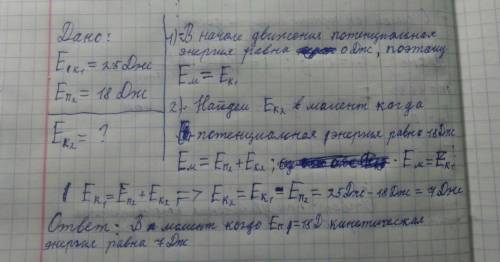 Дано:
E₁к₁ = 25 Дж
Eп₂ = 18 Дж
Eк₂ = ?
1) В начале движения потенциальная
энергия равна 0 Дж, поэтому
Eм = Eк₁
2) Найдем Eк₂ в момент когда
потенциальная энергия равна 18 Дж
Eм = Eп₂ + Eк₂; Eм = Eк₁
Eк₁ = Eп₂ + Eк₂ => Eк₂ = Eк₁ - Eп₂ = 25 Дж - 18 Дж = 7 Дж
Ответ: В момент когда Eп = 18 Д кинетическая
энергия равна 7 Дж